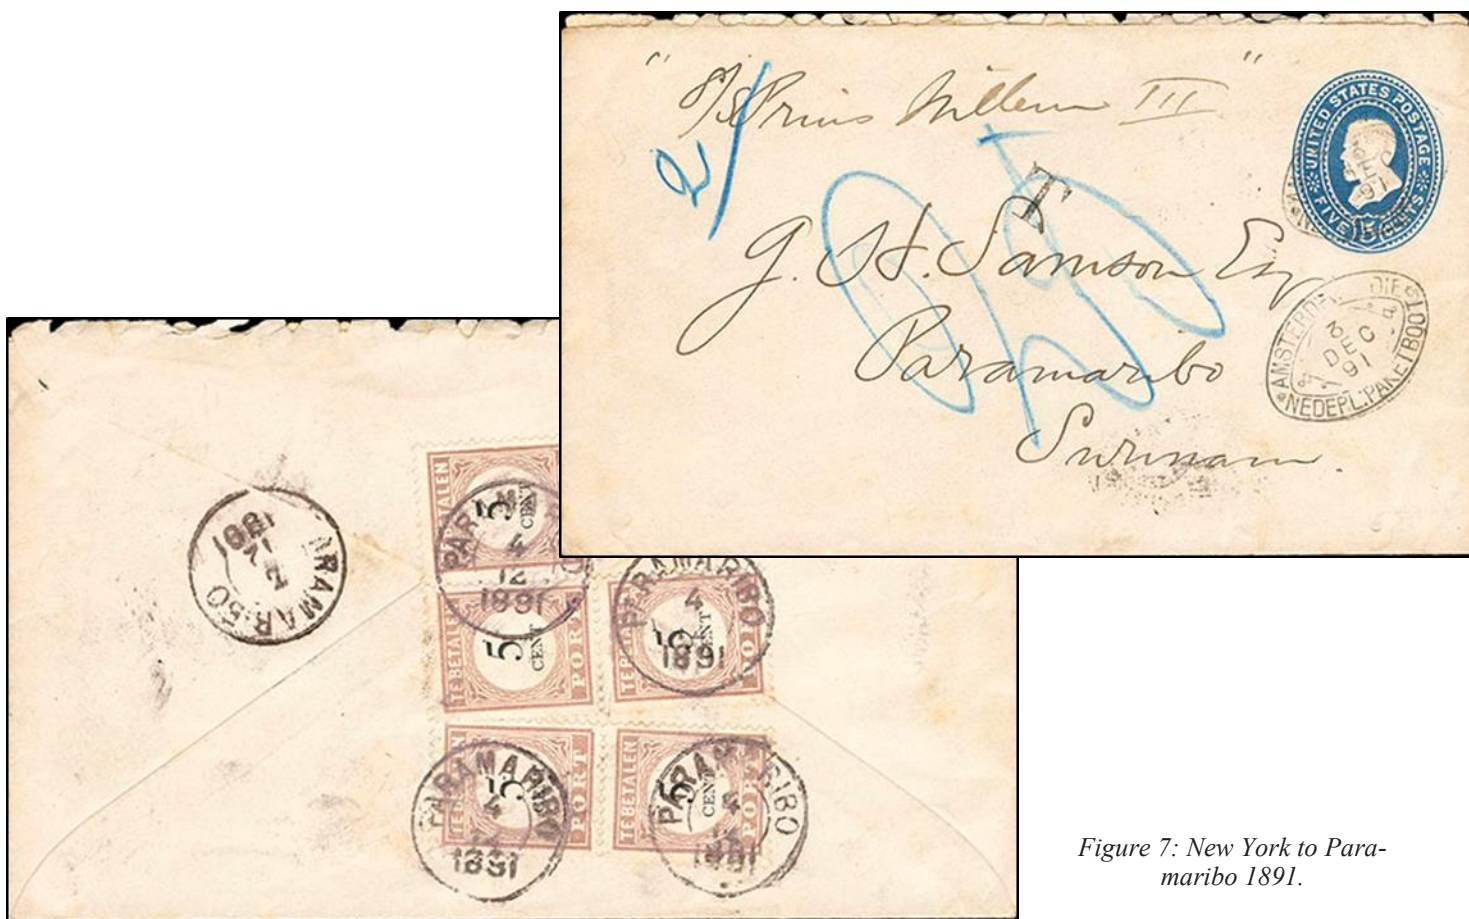 " S/S Prins Willem III "
2/
T
UNITED STATES POSTAGE
FIVE CENTS
DEC
91
G. H. Samson Esq
Paramaribo
Surinam.
AMSTERD
3
DEC
91
NEDERL: PAKETBOOT
ARAMARIBO
12
1891
TE BETALEN
5
CENT
PARAMARIBO
4
12
1891
TE BETALEN
5
CENT
PORT
TE BETALEN
5
CENT
PORT
PARAMARIBO
4
1891
TE BETALEN
5
PORT
PARAMARIBO
4
1891
TE BETALEN
5
CENT
PORT
PARAMARIBO
4
1891
Figure 7: New York to Para-
maribo 1891.